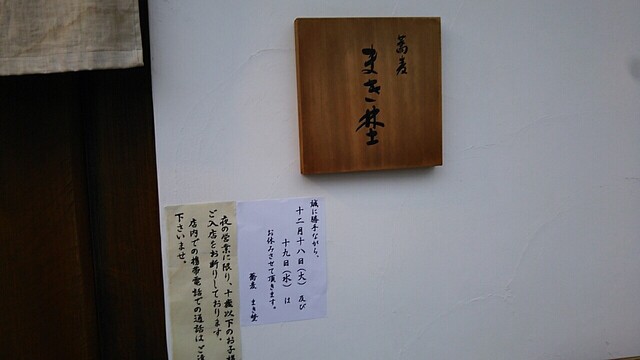 蕎麦
まき埜
誠に勝手ながら、
十二月十八日（火）及び
十九日（水）は
お休みさせて頂きます。
蕎麦 まき埜
夜の営業に限り、十歳以下のお子様
ご入店をお断りしております。
店内での携帯電話での通話はご遠
下さいませ。